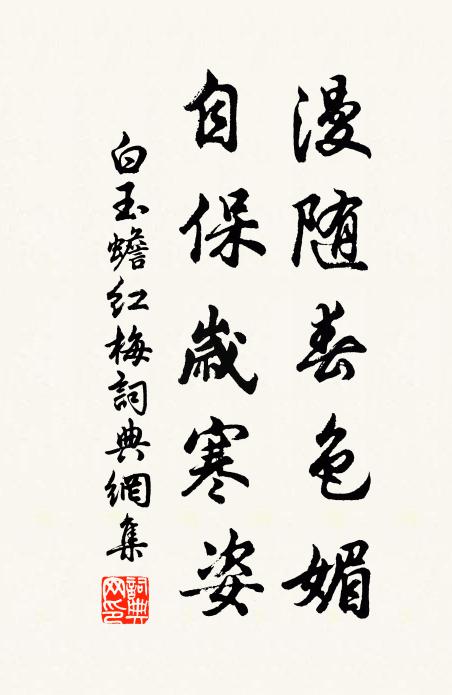 漫随春色媚
自保歲寒姿
白玉蟾红梅詞典網集
詞典
网印